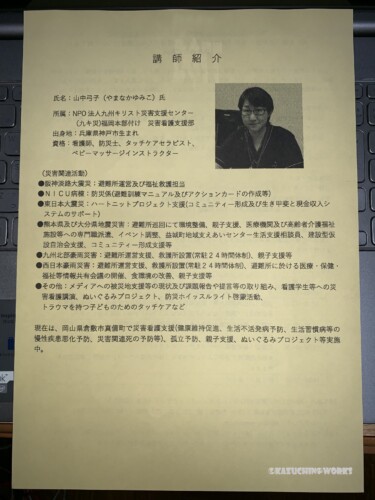 講師紹介
氏名:山中弓子(やまなかゆみこ)氏
所属:NPO法人九州キリスト災害支援センター
(九キ災)福岡本部付け 災害看護支援部
出身地:兵庫県神戸市生まれ
資格:看護師、防災士、タッチケアセラピスト、
ベビーマッサージインストラクター
(災害関連活動)
●阪神淡路大震災:避難所運営及び福祉救護担当
●NICU病棟:防災係(避難訓練マニュアル及びアクションカードの作成等)
●東日本大震災:ハートニットプロジェクト支援(コミュニティー形成及び生き甲斐と現金収入シ
ステムのサポート)
●熊本県及び大分県地震災害:避難所巡回にて環境整備、親子支援、医療機関及び高齢者介護福祉
施設等への専門職派遣、イベント調整、益城町地域支えあいセンター生活支援相談員、建設型仮
設自治会支援、コミュニティー形成支援等
●九州北部豪雨災害:避難所運営支援、救護所設置(常駐24時間体制)、親子支援等
●西日本豪雨災害:避難所運営支援、救護所設置(常駐24時間体制)、避難所に於ける医療・保健・
福祉等情報共有会議の開催、食環境の改善、親子支援等
●その他:メディアへの被災地支援等の現状及び課題報告や提言等の取り組み、看護学生等への災
害看護講演、ぬいぐるみプロジェクト、防災ホイッスルライト啓蒙活動、
トラウマを持つ子どものためのタッチケアなど
現在は、岡山県倉敷市真備町で災害看護支援(健康維持促進、生活不活発病予防、生活習慣病等の
慢性疾患悪化予防、災害関連死の予防等)、孤立予防、親子支援、ぬいぐるみプロジェクト等実施
中。